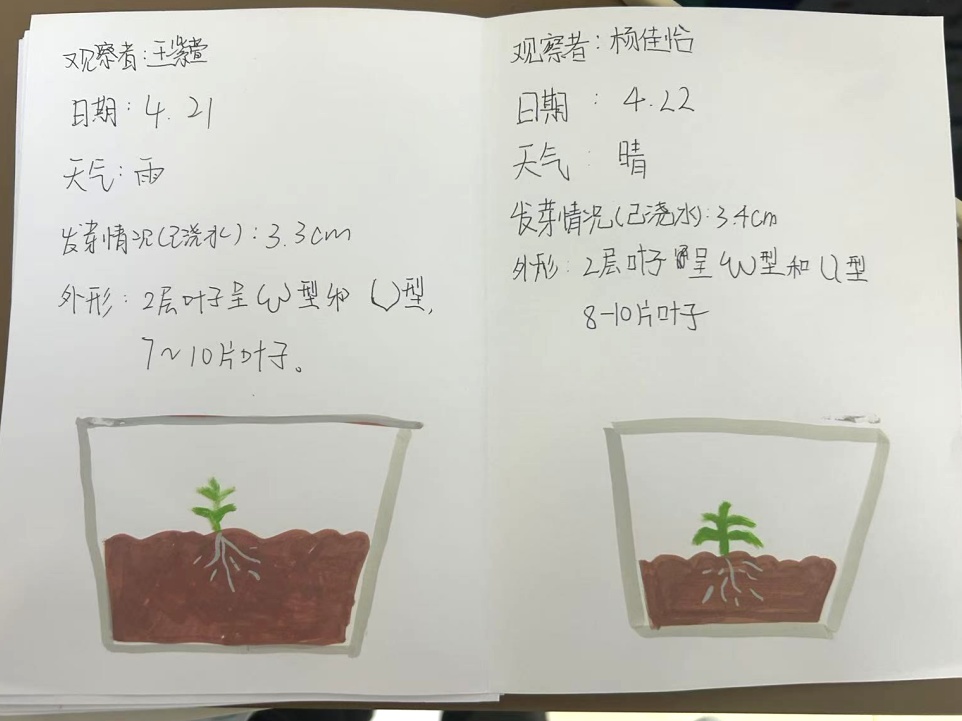 观察者:王紫萱
日期:4.21
天气:雨
发芽情况(已浇水):3.3cm
外形:2层叶子呈W型和U型,
7~10片叶子。
观察者:杨佳怡
日期:4.22
天气:晴
发芽情况(已浇水):3.4cm
外形:2层叶子呈W型和U型
8-10片叶子